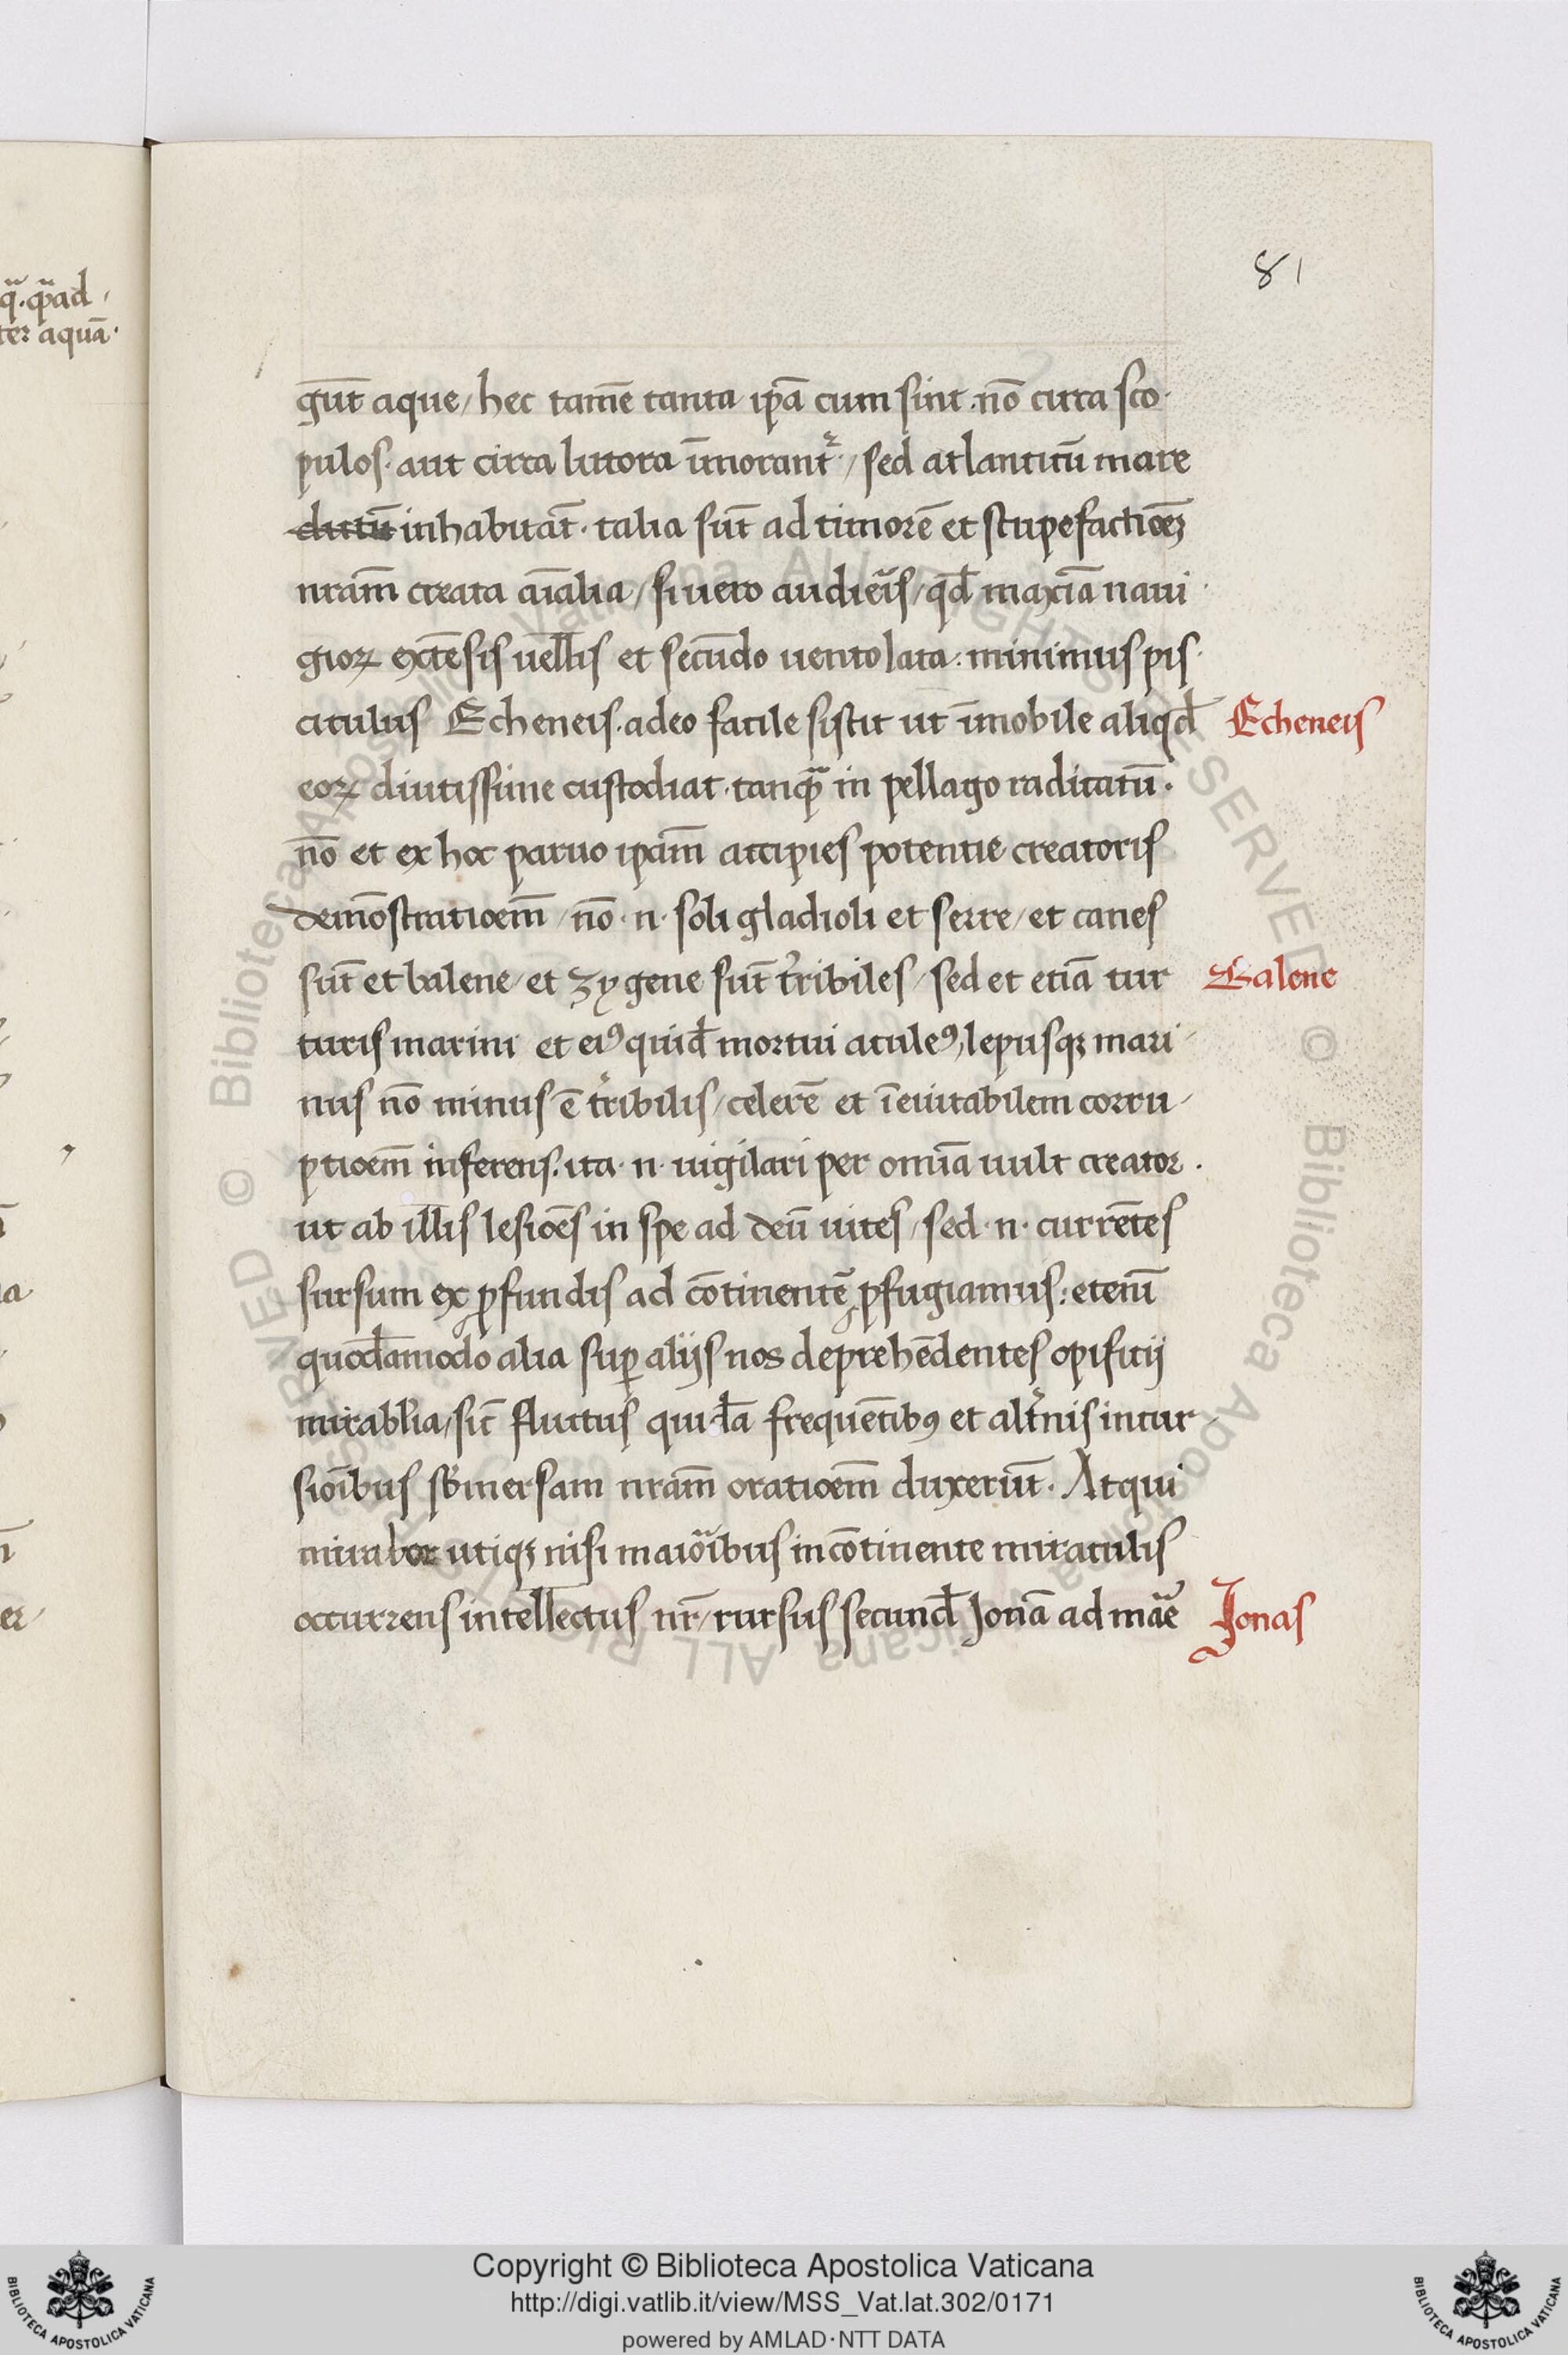 q̃ .q̃ad
ter aquā.
81
gūt aque / hec tamē tanta ip̄a cum sint . nō circa sco
pulos . aut circa littora īmorant᷑ / sed atlanticū mare
dictū inhabitāt . talia sūt ad timorē et stupefactiōeꝫ
nrām creata aīalia / si uero audieis̃ / qd̄ maxīa naui
gioꝝ extēsis uell̄is et secūdo uento lata : minimus pis
ciculus Echeneis . adeo facile sistit ut īmobile aliqd̄
Echeneis
eoꝝ diutissime custodiat . tanqᷓ in pellago radicatū .
nō et ex hoc paruo ipām accipies potentie creatoris
demōstratioem̄ / nō . n . soli gladioli et serre / et canes
sūt et balene / et zygene sūt tr̃ribiles / sed et etiā tur
Balene
turis marini et eiꝯ quid̄ mortui aculeꝯ, lepusqꝫ mari
nus nō minus ē tr̃ribilis / celerē et īeuitabilem corru
ptioem̄ inferens . ita . n . uigilari per omīa uult creator .
ut ab ill̄is lesiōes in spe ad deū uites / sed . n . currētes
sursum ex ꝓfundis ad cōtinentē ꝓfugiamus : etenī
quod̄amodo alia suꝑ alijs nos deprehēdentes opificij
mirabl̄ia / sic̄ fluctus quid̄a frequētibꝯ et alt᷑nis incur
sioībus sb̄mersam nrām oratioem̄ duxerūt . Atqui
mirabor utiqꝫ nisi maioᷓibus in cōtinente miraculis
occurrens intell̄ectus nr̄ / rursus secund̄ Jonā ad maᷓe
Jonas
Copyright © Biblioteca Apostolica Vaticana
http://digi.vatlib.it/view/MSS_Vat.lat.302/0171
powered by AMLAD·NTT DATA